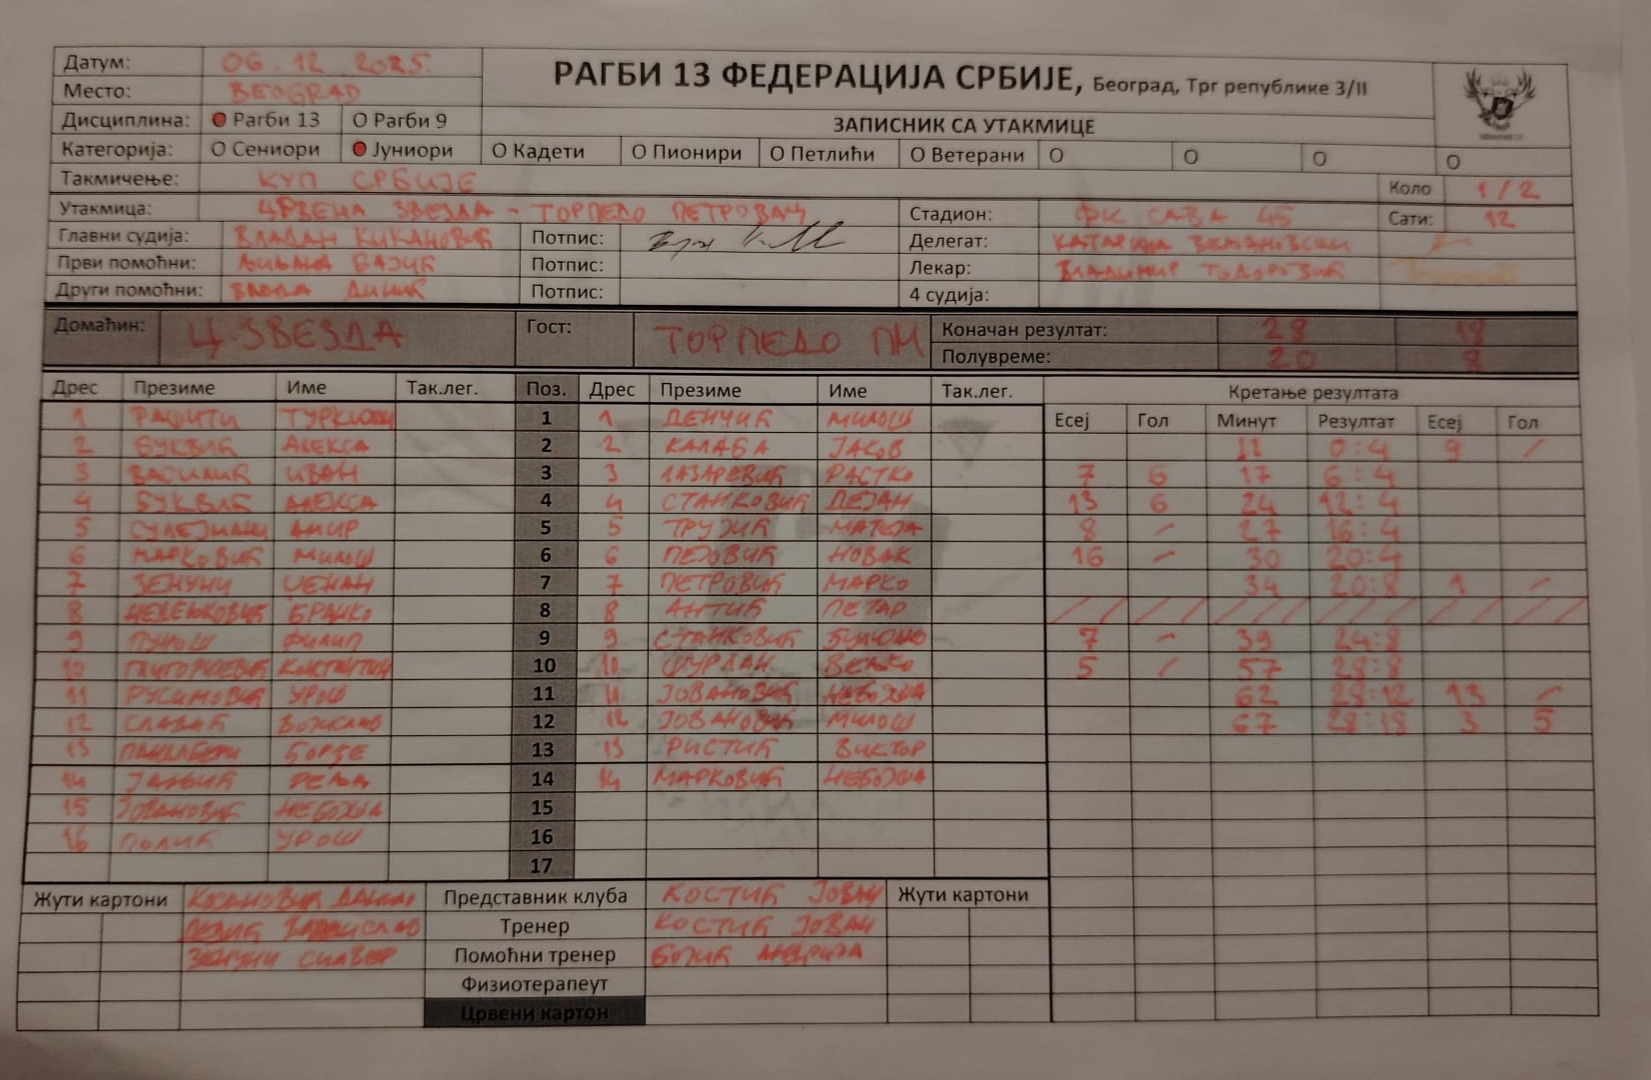 Датум: 06.12.2025. РАГБИ 13 ФЕДЕРАЦИЈА СРБИЈЕ, Београд, Трг републике 3/II
Место: BEOGRAD
Дисциплина: Рагби 13 О Рагби 9 ЗАПИСНИК СА УТАКМИЦЕ
Категорија: О Сениори Јуниори О Кадети О Пионири О Петлићи О Ветерани О О О О
Такмичење: КУП СРБИЈЕ Коло 1/2
Утакмица: ЦРВЕНА ЗВЕЗДА - ТОРПЕДО ПЕТРОВАЦ Стадион: ФК САВА 45 Сати: 12
Главни судија: ВЛАДАН КИКАНОВИЋ Потпис: Делегат: КАТАРИНА
Први помоћни: Потпис: Лекар: ВЛАДИМИР ТОДОРОВИЋ
Други помоћни: Потпис: 4 судија:
Домаћин: Ц. ЗВЕЗДА Гост: ТОРПЕДО ПМ Коначан резултат: 28 18
Полувреме: 20 8
Дрес Презиме Име Так.лег. Поз. Дрес Презиме Име Так.лег. Кретање резултата
Есеј Гол Минут Резултат Есеј Гол
1 1 1 ДЕНЧИЋ МИЛОШ
2 БУКВИЋ АЛЕКСА 2 2 КАЛАБА ЈАКОВ 11 0:4 9 /
3 ВАСИЛИЋ ИВАН 3 3 ЛАЗАРЕВИЋ РАСТКО 7 6 17 6:4
4 БУКВИЋ АЛЕКСА 4 4 СТАНКОВИЋ ДЕЈАН 13 6 24 12:4
5 СУЛЕЈМАНИ АМИР 5 5 ТРУЈИЋ МАТЕЈА 8 - 27 16:4
6 МАРКОВИЋ МИЛОШ 6 6 ПЕЈОВИЋ НОВАК 16 - 30 20:4
7 ЗЕНУНИ 7 7 ПЕТРОВИЋ МАРКО 34 20:8 1 -
8 НЕДЕЉКОВИЋ БРАНКО 8 8 АНТИЋ ПЕТАР / / / / / / / / / / / /
9 ФИЛИП 9 9 СТАНКОВИЋ 7 - 39 24:8
10 ГЛИГОРИЈЕВИЋ КОНСТАНТИН 10 10 ШУРЛАН ВЕЉКО 5 / 57 28:8
11 РУСИМОВИЋ УРОШ 11 11 ЈОВАНОВИЋ НЕБОЈША 62 28:12 13 -
12 СЛАВИЋ ВОЈИСЛАВ 12 12 ЈОВАНОВИЋ МИЛОШ 67 28:18 3 5
13 ЂОРЂЕ 13 13 РИСТИЋ ВИКТОР
14 ЈАЊИЋ РЕЉА 14 14 МАРКОВИЋ НЕБОЈША
15 ЈОВАНОВИЋ НЕБОЈША 15
16 УРОШ 16
17
Жути картони Представник клуба КОСТИЋ ЈОВАН Жути картони
Тренер КОСТИЋ ЈОВАН
ЗЕНУНИ СИЛВЕР Помоћни тренер БОЈИЋ АНДРИЈА
Физиотерапеут
Црвени картон